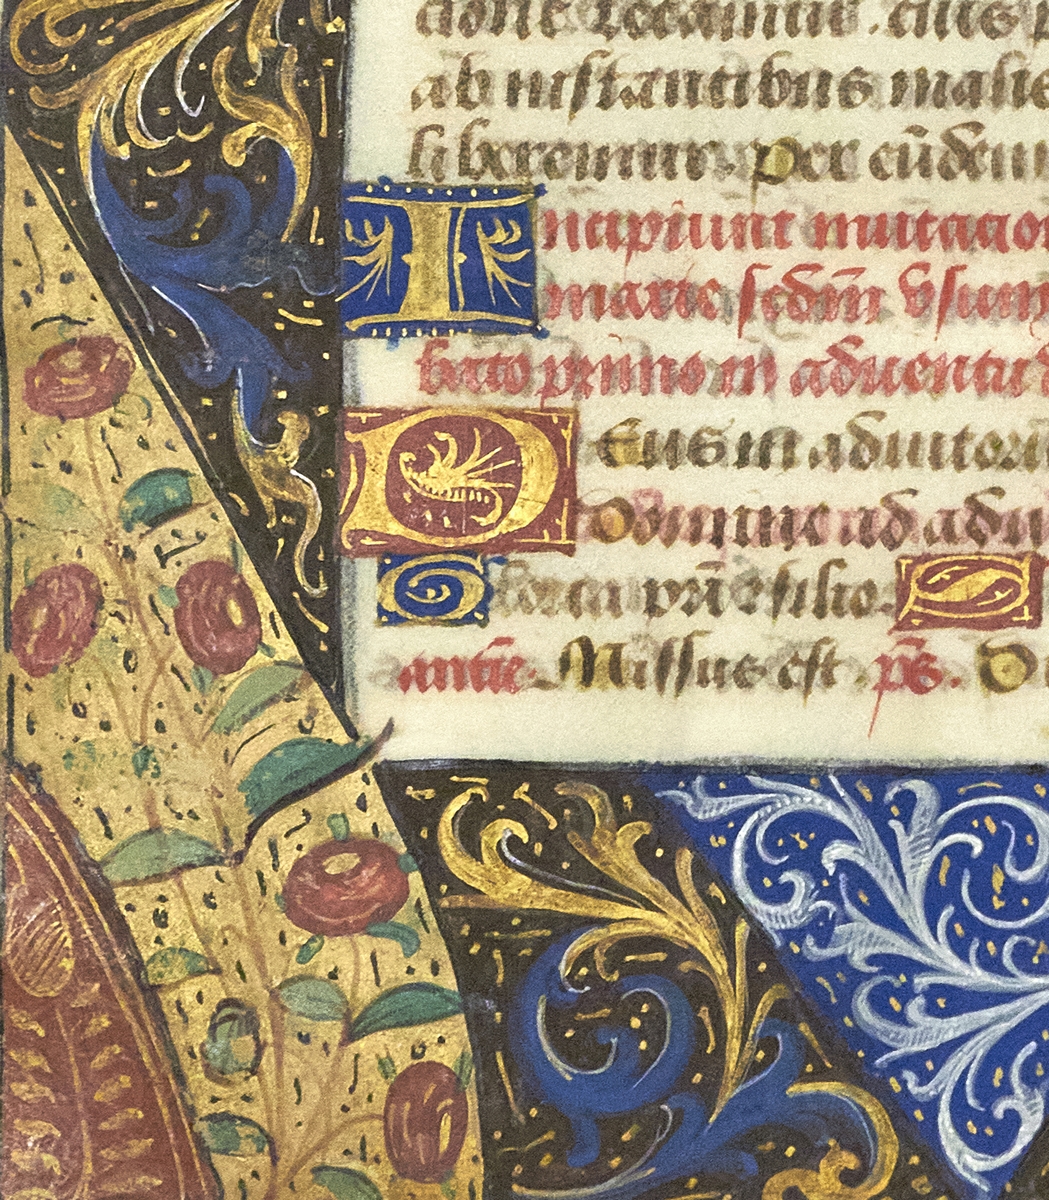 cione letamur. eius
ab instantibus malis
liberemur. Per eūdem
Incipiunt mutacio
marie sedm̄ vsum
bato primo in aduentu
Deus in adiutori
Domine ad adiu
Gloria pr̄i et filio.
antīe. Missus est. ps̄.